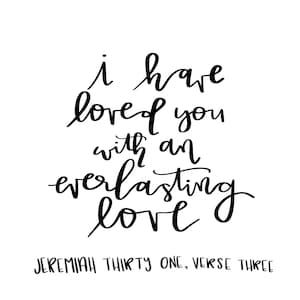 i have
loved you
with an
everlasting
love
JEREMIAH THIRTY ONE, VERSE THREE